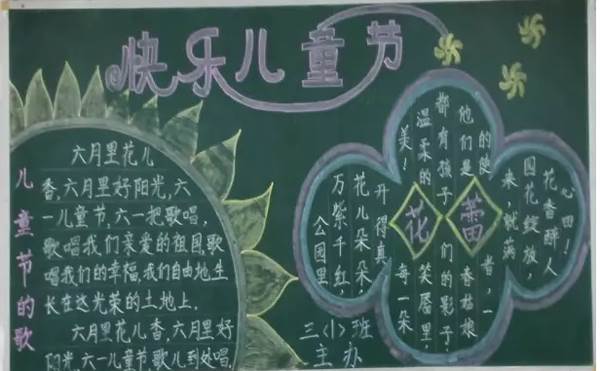 快乐儿童节
儿童节的歌
六月里花儿
香,六月里好阳光,六
一儿童节,六一把歌唱,
歌唱我们亲爱的祖国,歌
唱我们的幸福,我们自由地生
长在这光荣的土地上.
六月里花儿香,六月里好
阳光,六一儿童节,歌儿到处唱.
花蕾
公园里
万紫千红,
花儿朵朵
开得真
美!每一朵
温柔的笑唇里,
都有孩子们的影子.
他们是春姑娘
的使者,一
来,就满
园花绽放,
花香醉人
心田!
三(1)班
主办